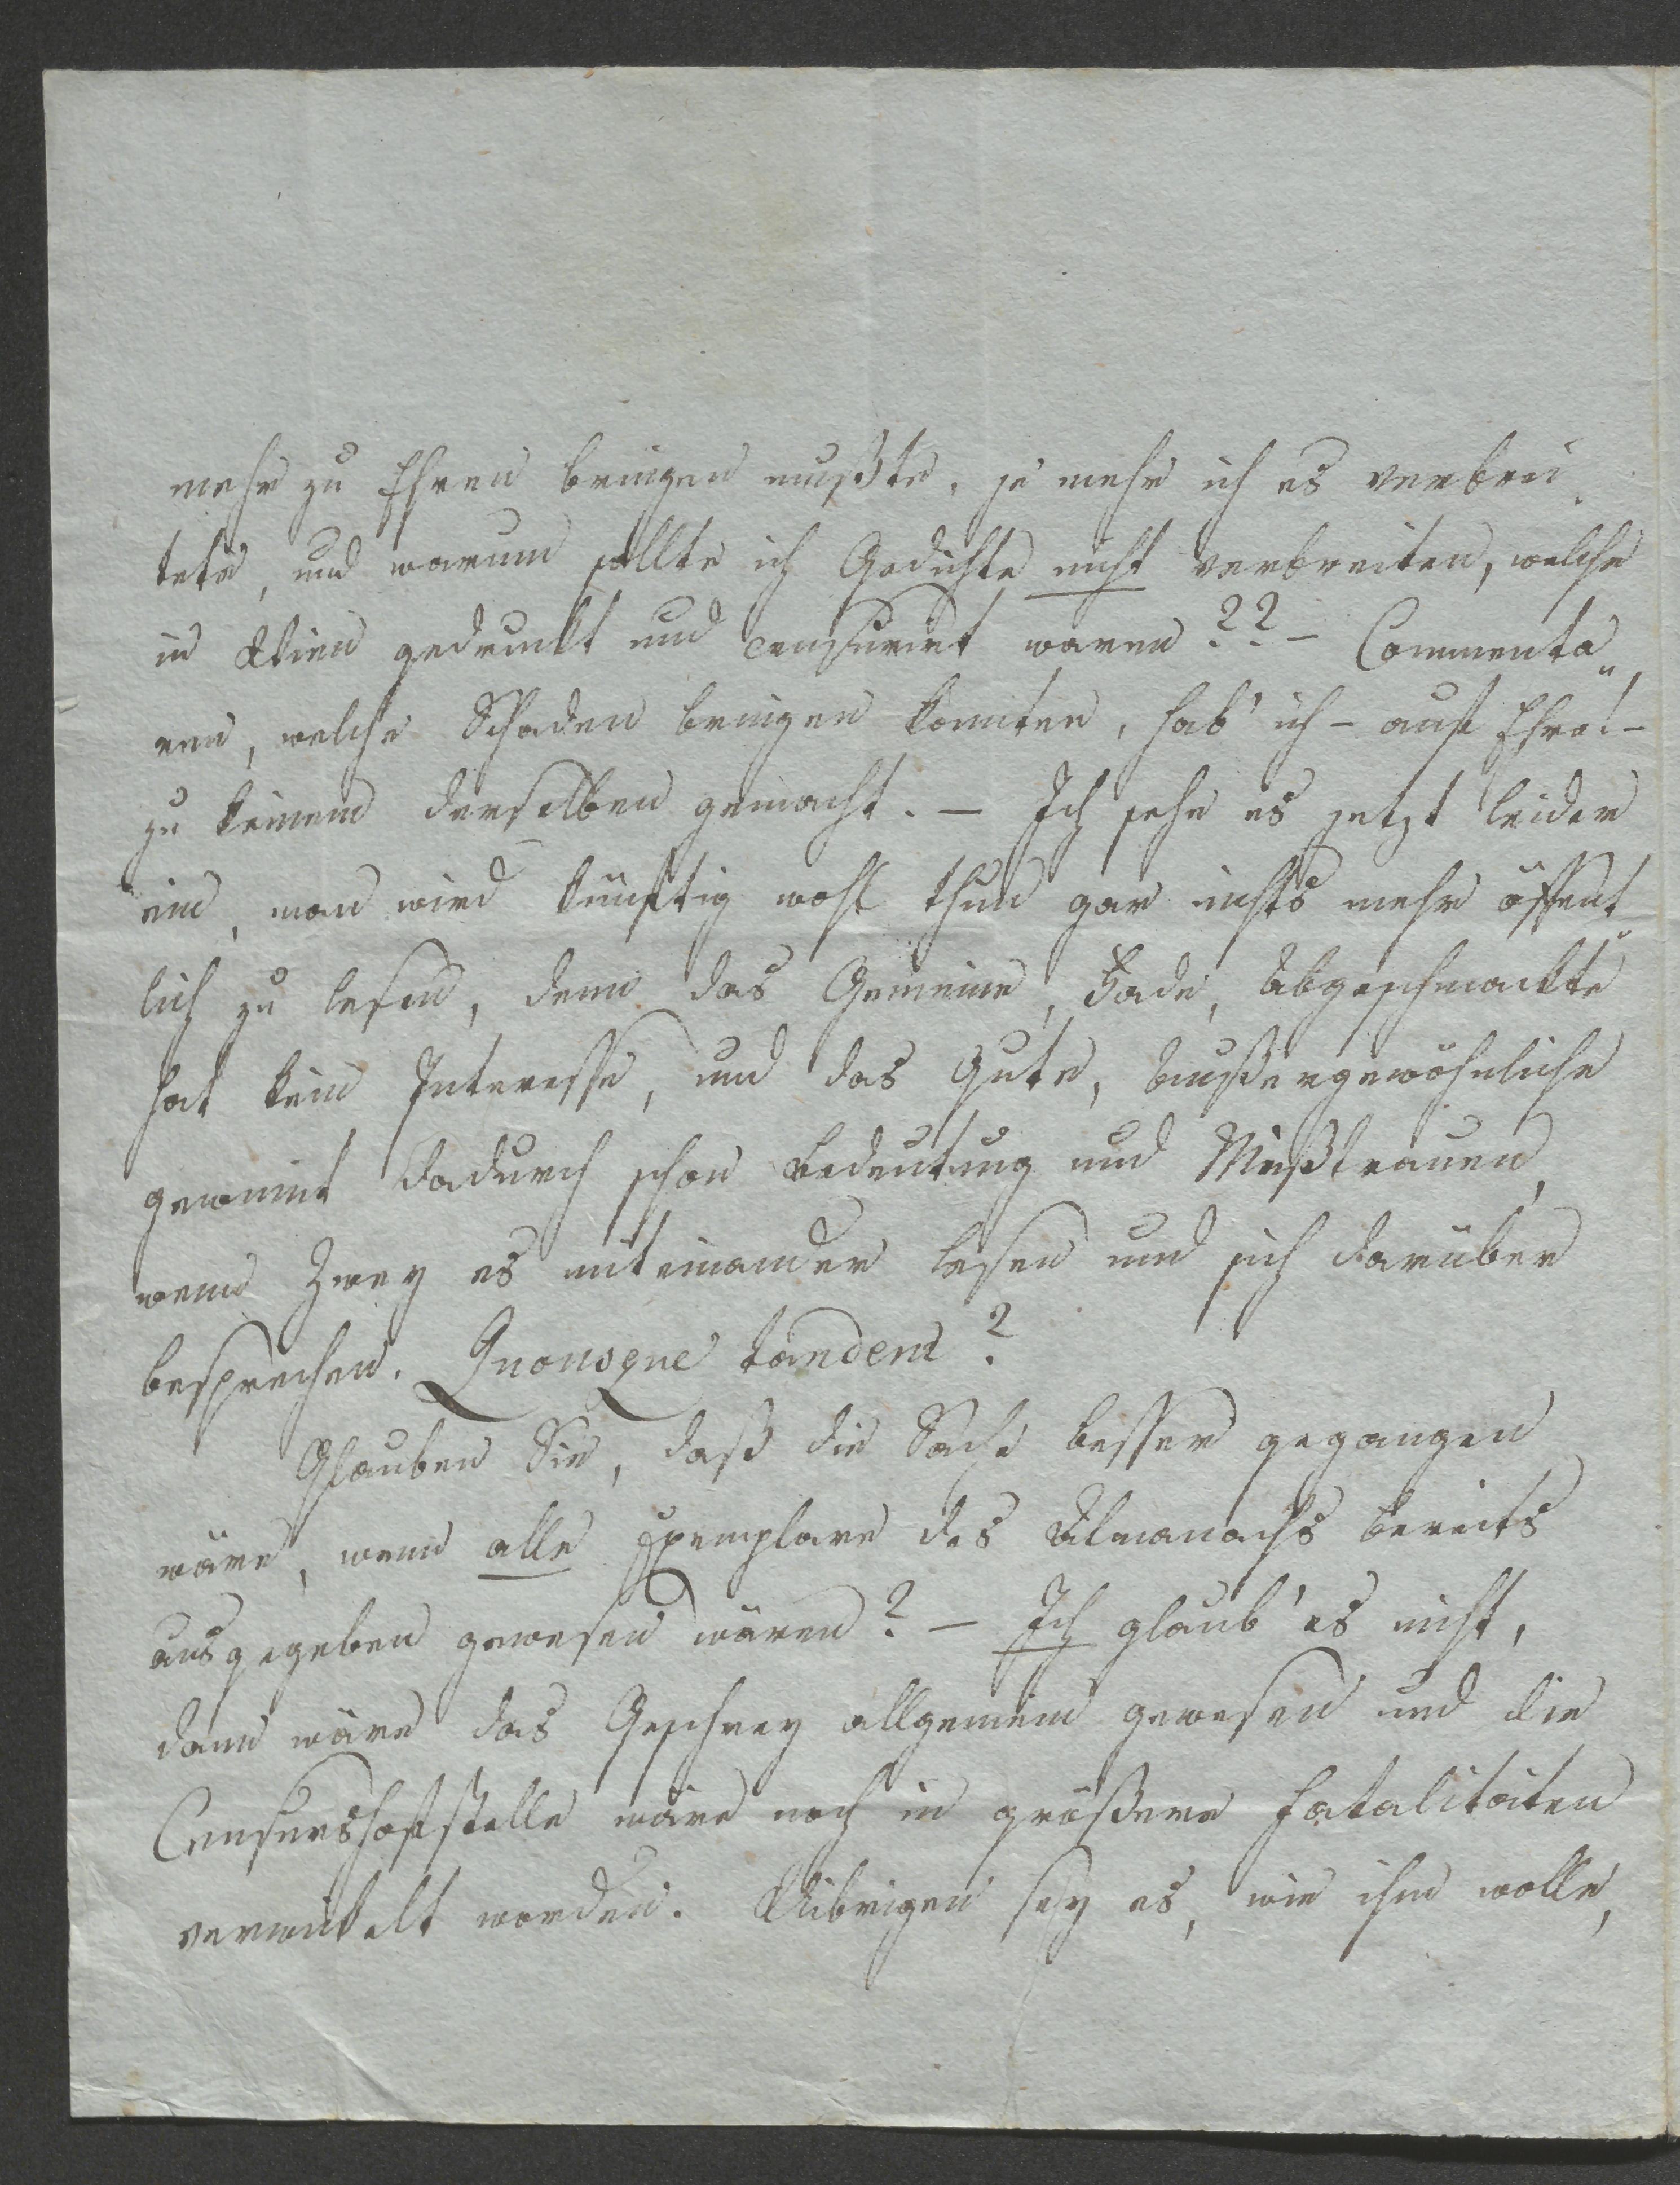 mehr zu Ehren bringen mußte, je mehr ich es verbrei-
tete, und warum sollte ich Gedichte nicht verbreiten, welche
in Wien gedruckt und censurirt waren?? – Commenta„
ren, welche Schaden bringen konnten, hab' ich – auf Ehre! –
zu keinem derselben gemacht. – Ich sehe es jetzt leider
ein, man wird künftig wohl thun gar nichts mehr öffent
lich zu lesen, denn das Gemeine, Fade, Abgeschmackte
hat kein Interesse, und das Gute, Außergewöhnliche
gewinnt dadurch schon Bedeutung und Mißtrauen,
wenn Zwey es miteinander lesen und sich darüber
besprechen. Quousque tandem?
Glauben Sie, daß die Sache besser gegangen
wäre, wenn alle Exemplare des Almanachs bereits
ausgegeben gewesen wären? – Ich glaub' es nicht,
dann wäre das Geschrey allgemein gewesen und die
Censurshofstelle wäre noch in größere Fatalitäten
verwickelt worden. Uibrigens sey es, wie ihm wolle,